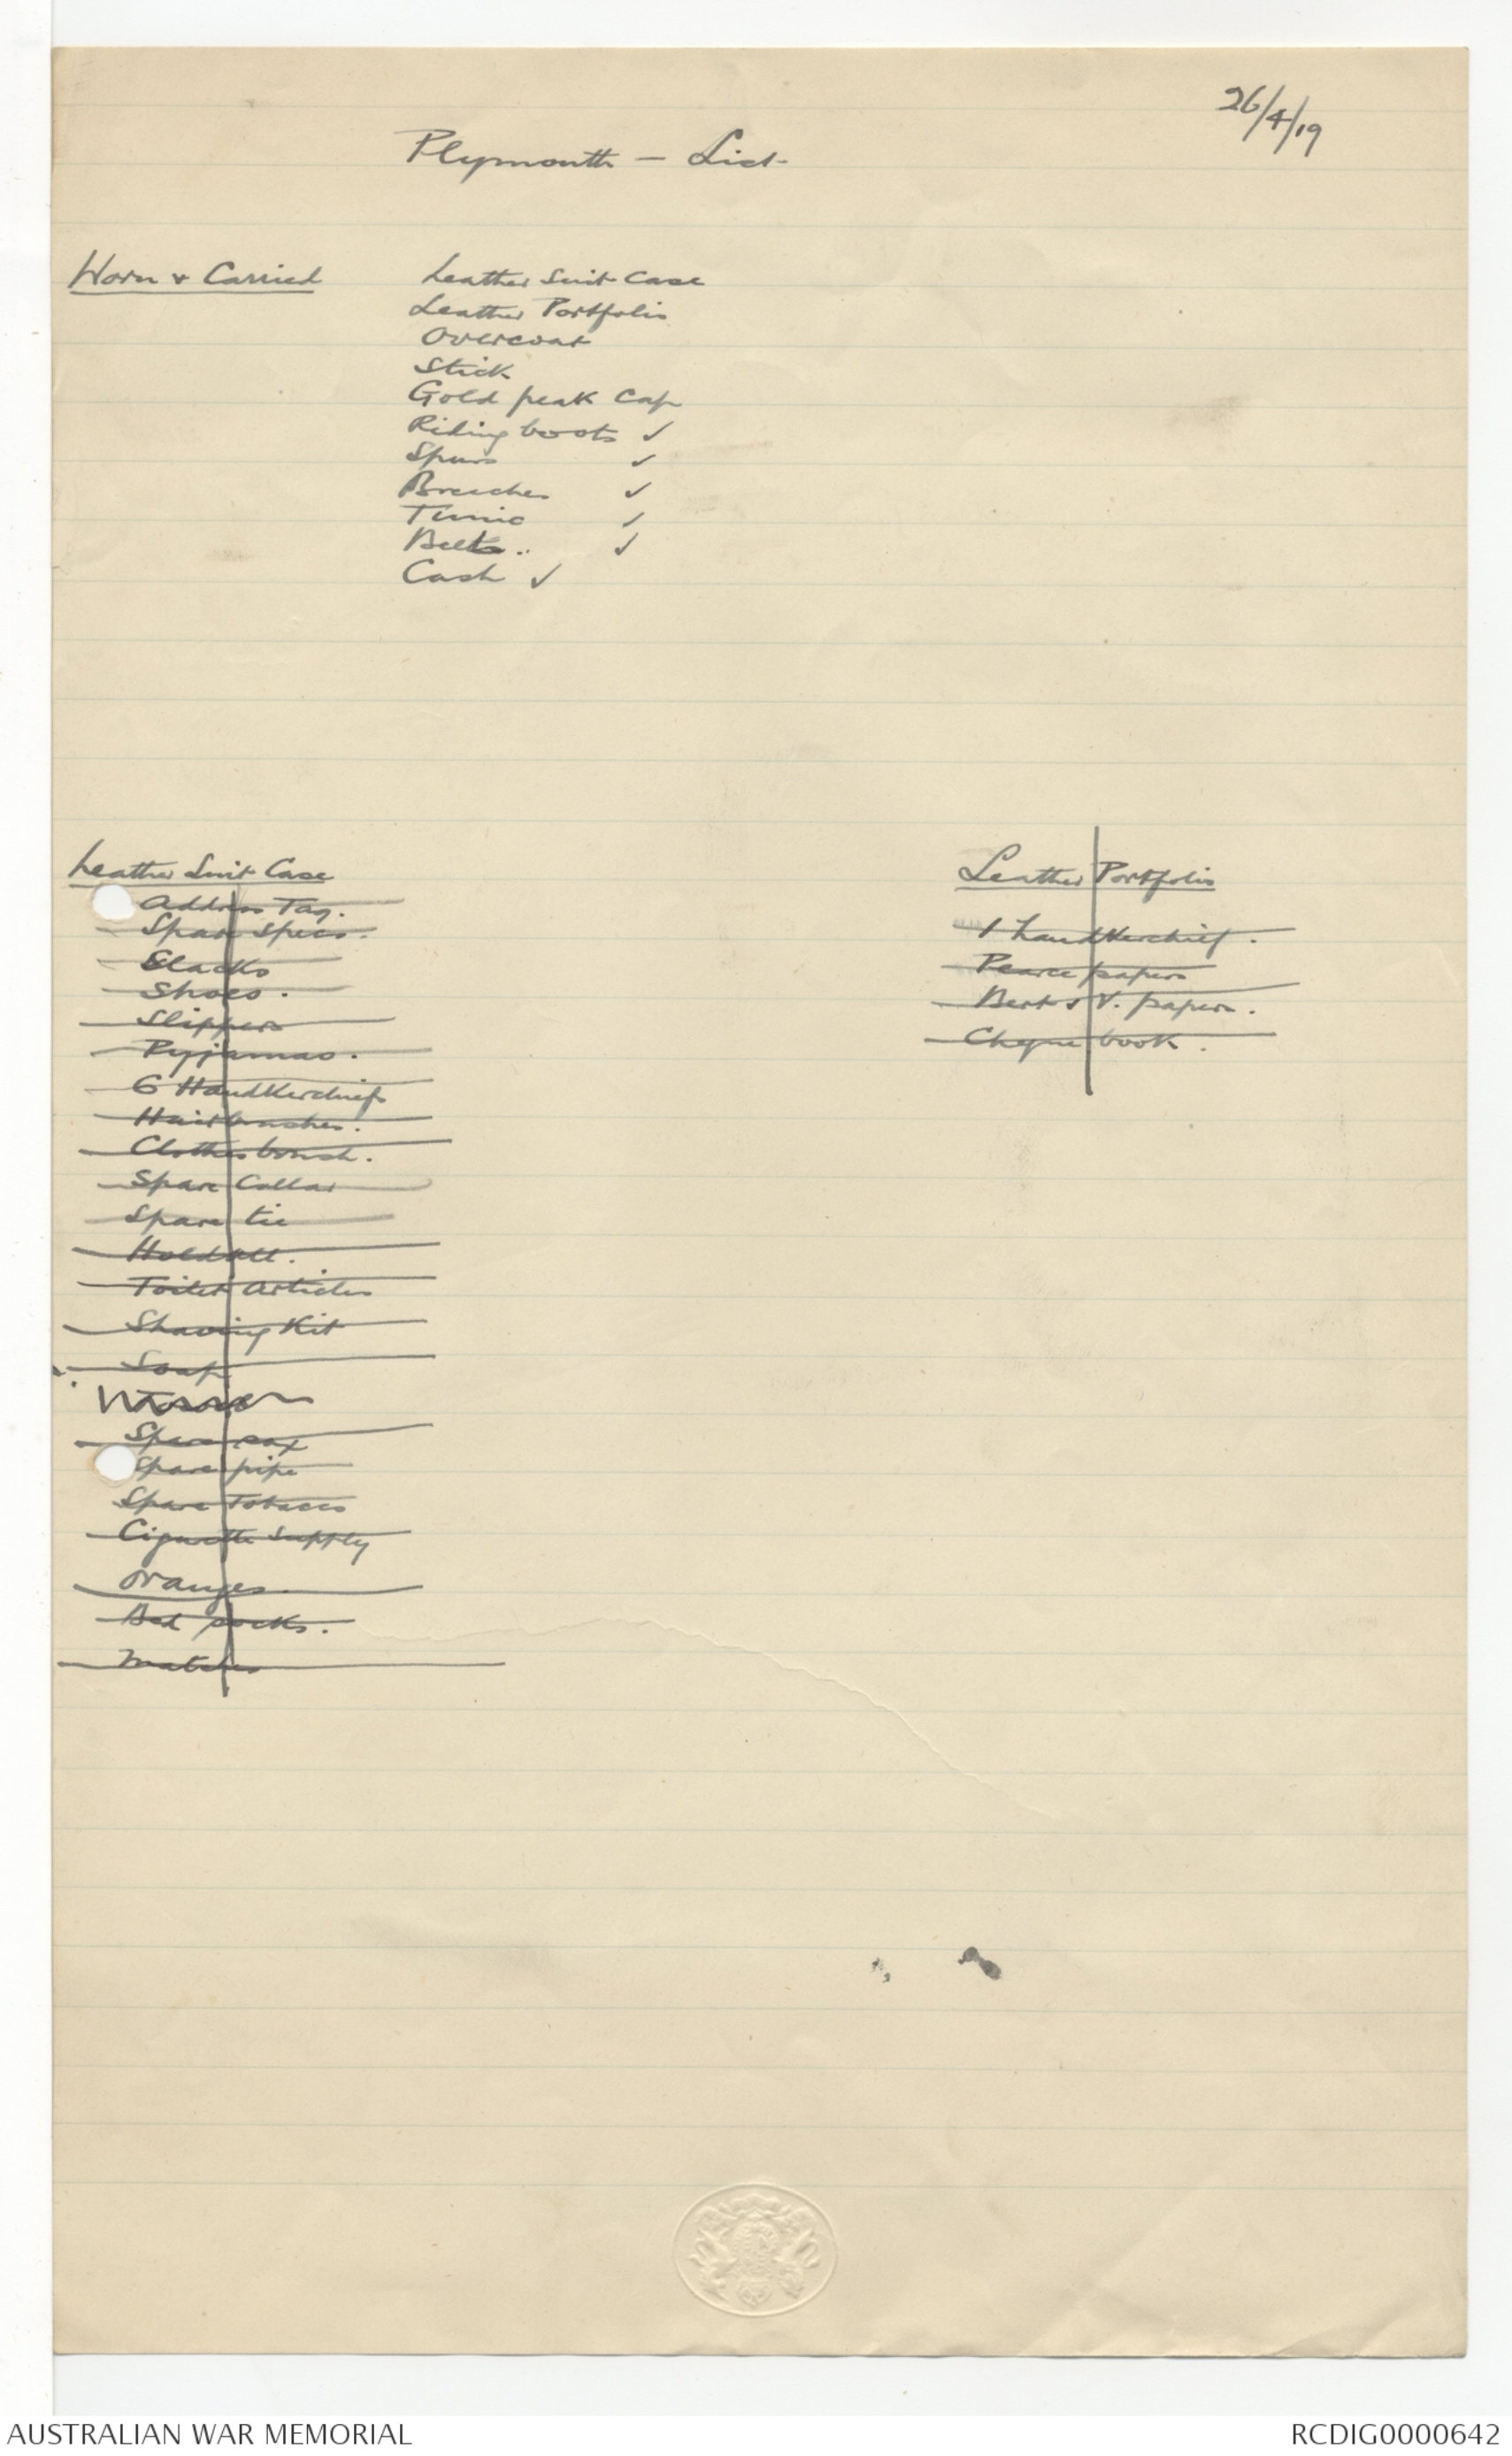 26/4/19
Plymouth - List
Worn & Carried
Leather Suit Case
Leather Portfolio
Overcoat
Stick
Gold peak Cap
Riding boots ✓
Spurs ✓
Breeches ✓
Tunic ✓
Belts.. ✓
Cash ✓
Leather Suit Case
Address Tag.
Spare Specs.
Slacks
Shoes.
Slippers
Pyjamas.
6 Handkerchiefs
Hairbrushes.
Clothes brush.
Spare Collar
Spare tie
Holdall.
Toilet Articles
Shaving Kit
Soap
Spare cap
Spare pipe
Spare Tobacco
Cigarette Supply
Oranges
Bed socks.
Matches
Leather Portfolio
1 handkerchief.
Pearce papers
Bert & V. papers.
Cheque book.
AUSTRALIAN WAR MEMORIAL
RCDIG0000642